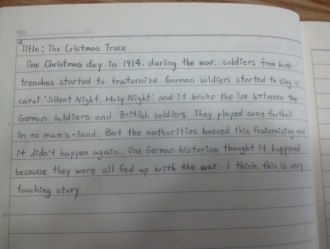 Title: The Cristmas Truce
One Christmas day in 1914, during the war, soldiers from both
trenches started to fraternise. German soldiers started to sing a
carol 'Silent Night, Holy Night' and it broke the ice between the
German soldiers and British soldiers. They played some football
in no man's-land. But the authorities banned this fraternising and
it didn't happen again. One German historian thought it happened
because they were all fed up with the war. I think this is very
touching story.